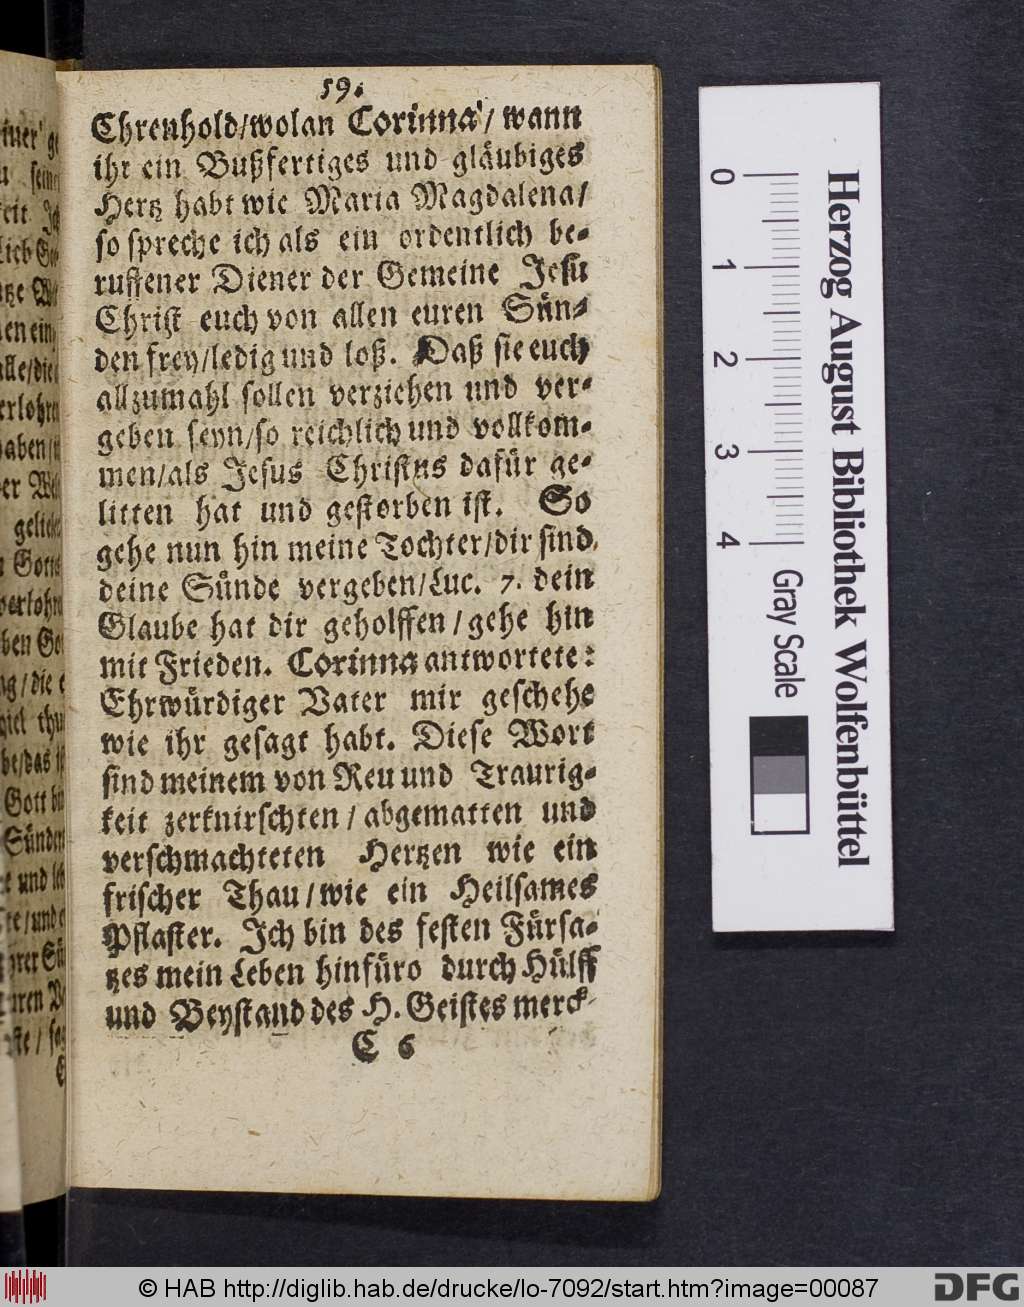 59.
Ehrenhold/wolan Corinna/ wann
ihr ein Bußfertiges und gläubiges
Hertz habt wie Maria Magdalena/
so spreche ich als ein ordentlich be-
ruffener Diener der Gemeine Jesu
Christ euch von allen euren Sün-
den frey/ledig und loß. Daß sie euch
allzumahl sollen verziehen und ver-
geben seyn/so reichlich und vollkom-
men/als Jesus Christus dafür ge-
litten hat und gestorben ist. So
gehe nun hin meine Tochter/dir sind
deine Sünde vergeben/Luc. 7. dein
Glaube hat dir geholffen/gehe hin
mit Frieden. Corinna antwortete:
Ehrwürdiger Vater mir geschehe
wie ihr gesagt habt. Diese Wort
sind meinem von Reu und Traurig-
keit zerknirschten/ abgematten und
verschmachteten Hertzen wie ein
frischer Thau/wie ein Heilsames
Pflaster. Ich bin des festen Fürsa-
tzes mein Leben hinfüro durch Hülff
und Beystand des H. Geistes merck-
C 6
Herzog August Bibliothek Wolfenbüttel
0 1 2 3 4
Gray Scale
© HAB http://diglib.hab.de/drucke/lo-7092/start.htm?image=00087
DFG